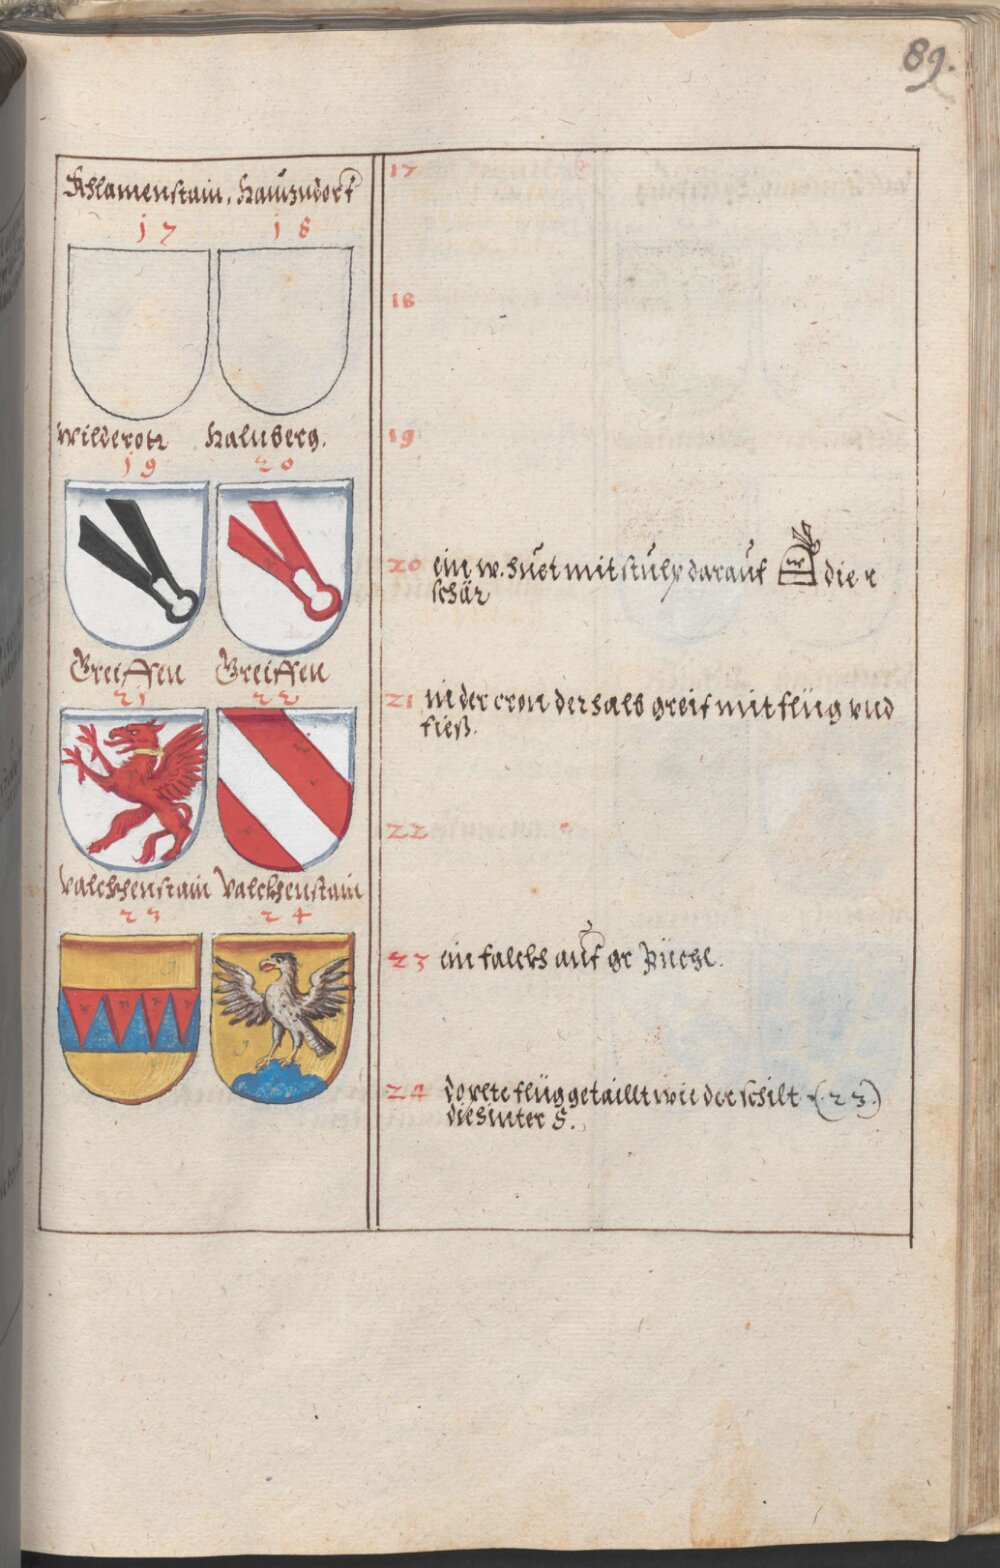 89.
Khlamenstain. Hauzndorf
17 18
Wilderott Halnberg.
19 20
Greiffen Greiffen
21 22
Valckhenstain Valckhenstain
23 24
17
18
19
20 ein w. huet mit stulp darauf die r
schär
21 in der cron der halb greif mit flüg vnd
fieß.
22
23 ein falckh auf gr pühel.
24 dopelte flüg getailt wie der schilt (23)
die hinter S.